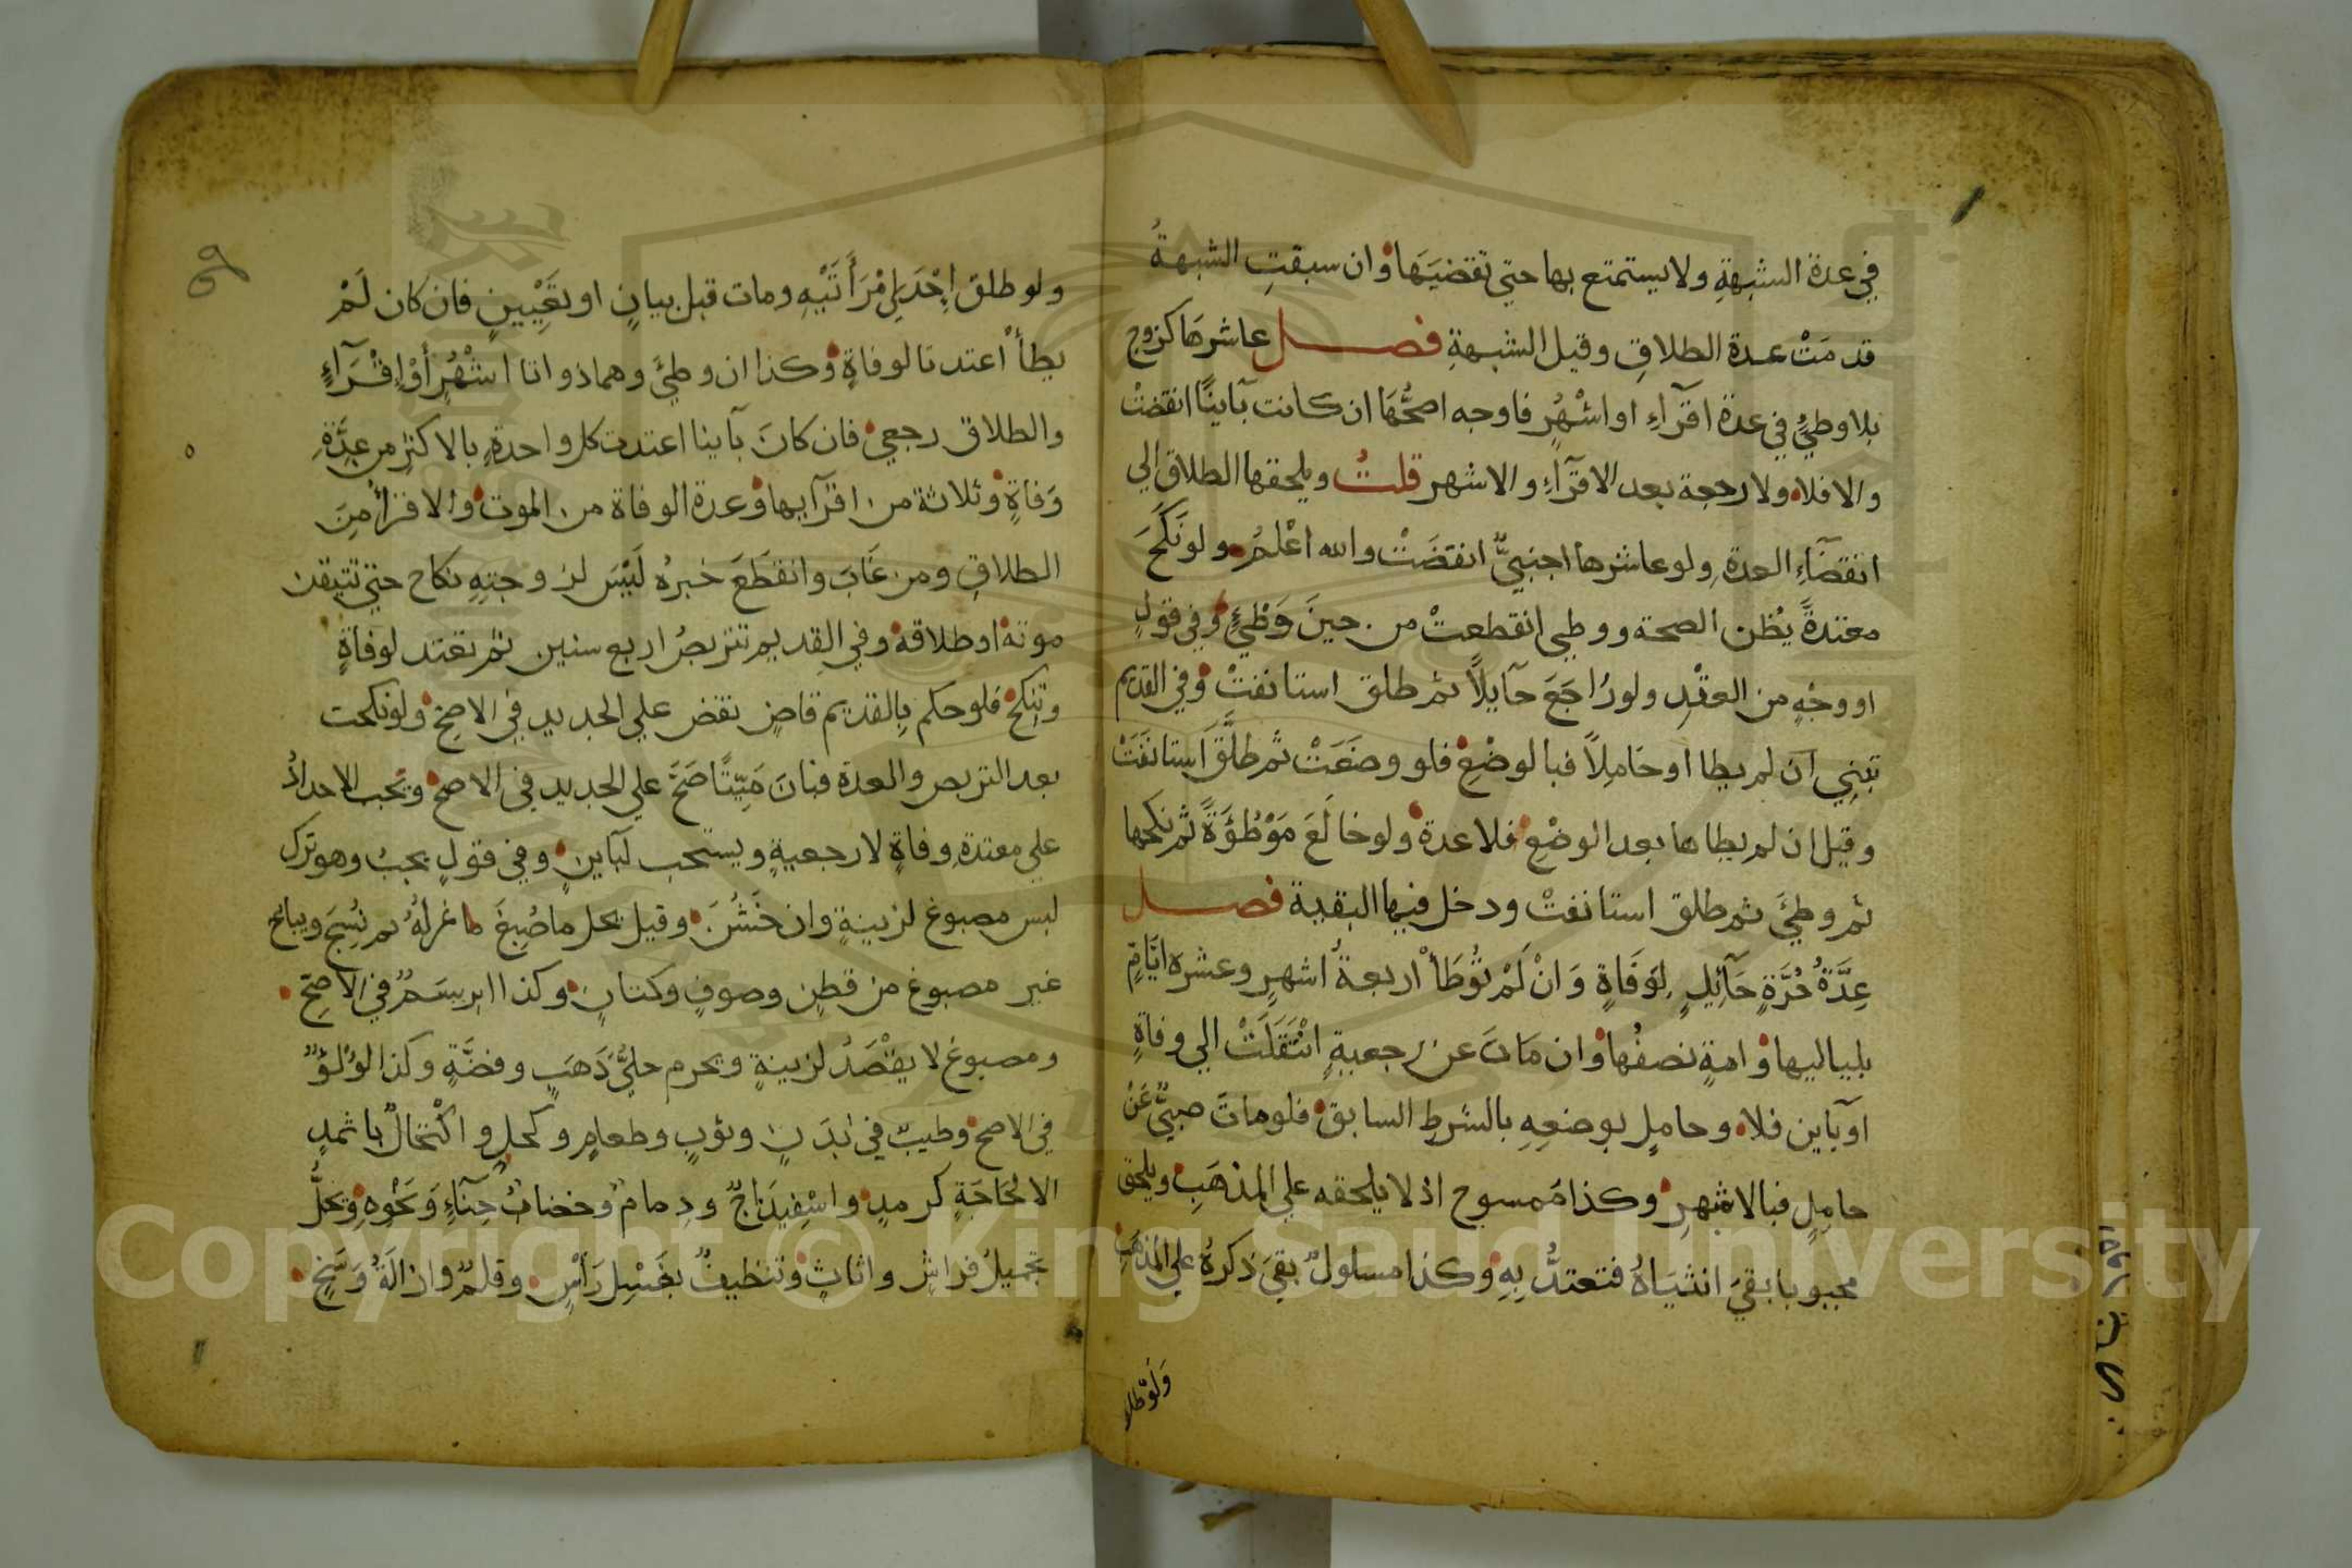 في عدة الشبهةِ ولا يستمتع بها حتي تقضيَهَا وان سبقتِ الشبهةُ
قدمَتْ عدة الطلاقِ وقيل الشبهةِ فصل عاشرهَا كزوج
بلا وطيٍ في عدة اقرآءِ او اشْهُرٍ فاوجه اصحُّهَا ان كانت بآينًا انقضتْ
والا فلا ولا رجعة بعد الاقرآءِ والاشهر قلتُ ويلحقها الطلاق الي
انقضآءِ العدةِ ولو عاشرها اجنبيٌّ انقضَتْ والله اعْلمُ ولو نَكَحَ
معتدةً يُظن الصحة ووطي انقطعتْ من حينَ وَطْيٍ وفي قولٍ
او وجْهٍ من العقْدِ ولو رُاجَعَ حآيلاً ثم طلق استانفتْ وفي القديم
تبْنِي ان لم يطا او حَامِلاً فبالوضْعِ فلو وضَعَتْ ثم طلَّقَ استانفَتْ
وقيل ان لم يطاها بعد الوضْعِ فلا عدة ولو خالَعَ مَوْطُؤَةً ثم نكحها
ثم وطيَ ثم طلق استانفتْ ودخل فيها البقية فصل
عِدَّةُ حُرَّةٍ حَآئِلٍ لِوَفَاةٍ وَانْ لَمْ تُوطَأْ اربعةُ اشهرٍ وعشرة ايَّامٍ
بلياليها وامةٍ نصفُهَا وان مَاتَ عن رجعيةٍ انْتَقَلَتْ الي وفاةٍ
او بآين فلا وحاملٍ بوضعِهِ بالشرطِ السابق فلو ماتَ صبيٌّ عَنْ
حاملٍ فبالاشهرِ وكذا مَمسوح اذ لا يلحقه علي المذهَبِ ويلحق
مجبوبا بقيَ انثيَاهُ فتعتدُّ بِهِ وكذا مسلولٌ بقيَ ذكرهُ علي المذهَبِ
وَلَوْ طلا
ولو طلق اِحْدَي امْرَأَتَيْهِ ومات قبل بيانٍ او تعْيِينٍ فان كان لَمْ
يطأْ اعتدتا لوفاةٍ وكذا ان وطيَ وهما ذواتا اشْهُرٍ أَوْ اِقْرَآءٍ
والطلاق رجعي فان كانَ بآينا اعتدت كل واحدةٍ بالاكثرِ من عِدَّةِ
وَفاةٍ وثلاثة من اقرآيها وعدة الوفاة من الموت والاقرأُ مِنَ
الطلاقِ ومن غَابَ وانقَطَعَ خبرهُ لَيْسَ لزوجتِهِ نكاح حتي تتيقن
موته او طلاقه وفي القديم تتربصُ اربع سنين ثم تعتد لوفاةٍ
وتنكحُ فلو حكم بالقديم قاضٍ نقض علي الجديد في الاصحِ ولو نكحت
بعد التربص والعدة فبانَ مَيّتًا صَحَّ علي الجديد في الاصح ويجب الاحدادُ
علي معتدةِ وفاةٍ لا رجعيةٍ ويستحب لبآينٍ وفي قولٍ يجبُ وهو ترك
لبس مصبوغ لزينةٍ وان خَشُنَ وقيل يحل ما صُبِغَ ما غزلُهُ ثم نُسِجَ ويباح
غير مصبوغ من قطنٍ وصوفٍ وكتانٍ وكذا ابريسَمٌ في الاصحِ
ومصبوغ لا يقْصَدُ لزينةٍ ويحرم حليُّ ذَهَبٍ وفضَّةٍ وكذا لؤلؤٌ
في الاصح وطيبٌ في بَدَنٍ وثوبٍ وطعامٍ وكحلٍ واكْتحالٌ باثمدٍ
الا لحَاجَةٍ كرمدٍ واسْفِيدَاجٌ ودمام وخضابُ حِنَّآءٍ وَنحْوِهِ وَيحلُّ
تجميلُ فراشٍ واثاثٍ وتنظيفٌ بغسْلِ رَأسٍ وقلمٌ وازالَةُ وَسَخٍ
Copyright © King Saud University